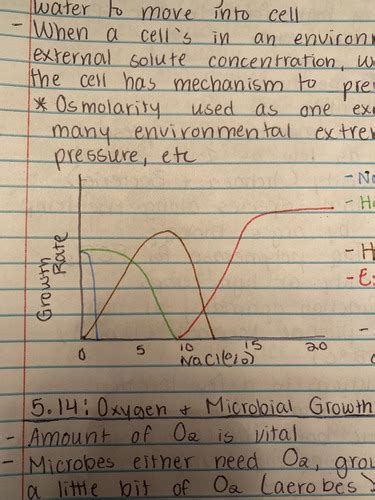 water to move into cell
- When a cell's in an
external solute concentration,
the cell has mechanism to
* Osmolarity used as one
many environmental
pressure, etc
Growth
Rate
0 5 10 15 20
NaCl(%)
5.14: Oxygen + Microbial Growth
- Amount of O2 is vital
- Microbes either need O2,
a little bit of O2 (aerobes)